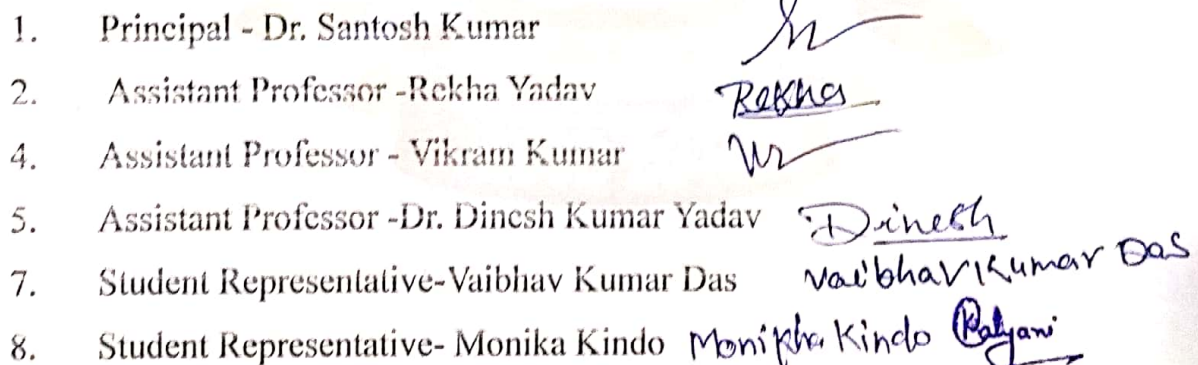 1. Principal - Dr. Santosh Kumar
2. Assistant Professor -Rekha Yadav Rekha
4. Assistant Professor - Vikram Kumar
5. Assistant Professor -Dr. Dinesh Kumar Yadav Dinesh
7. Student Representative-Vaibhav Kumar Das Vaibhav Kumar Das
8. Student Representative- Monika Kindo Monikha Kindo Kalyani